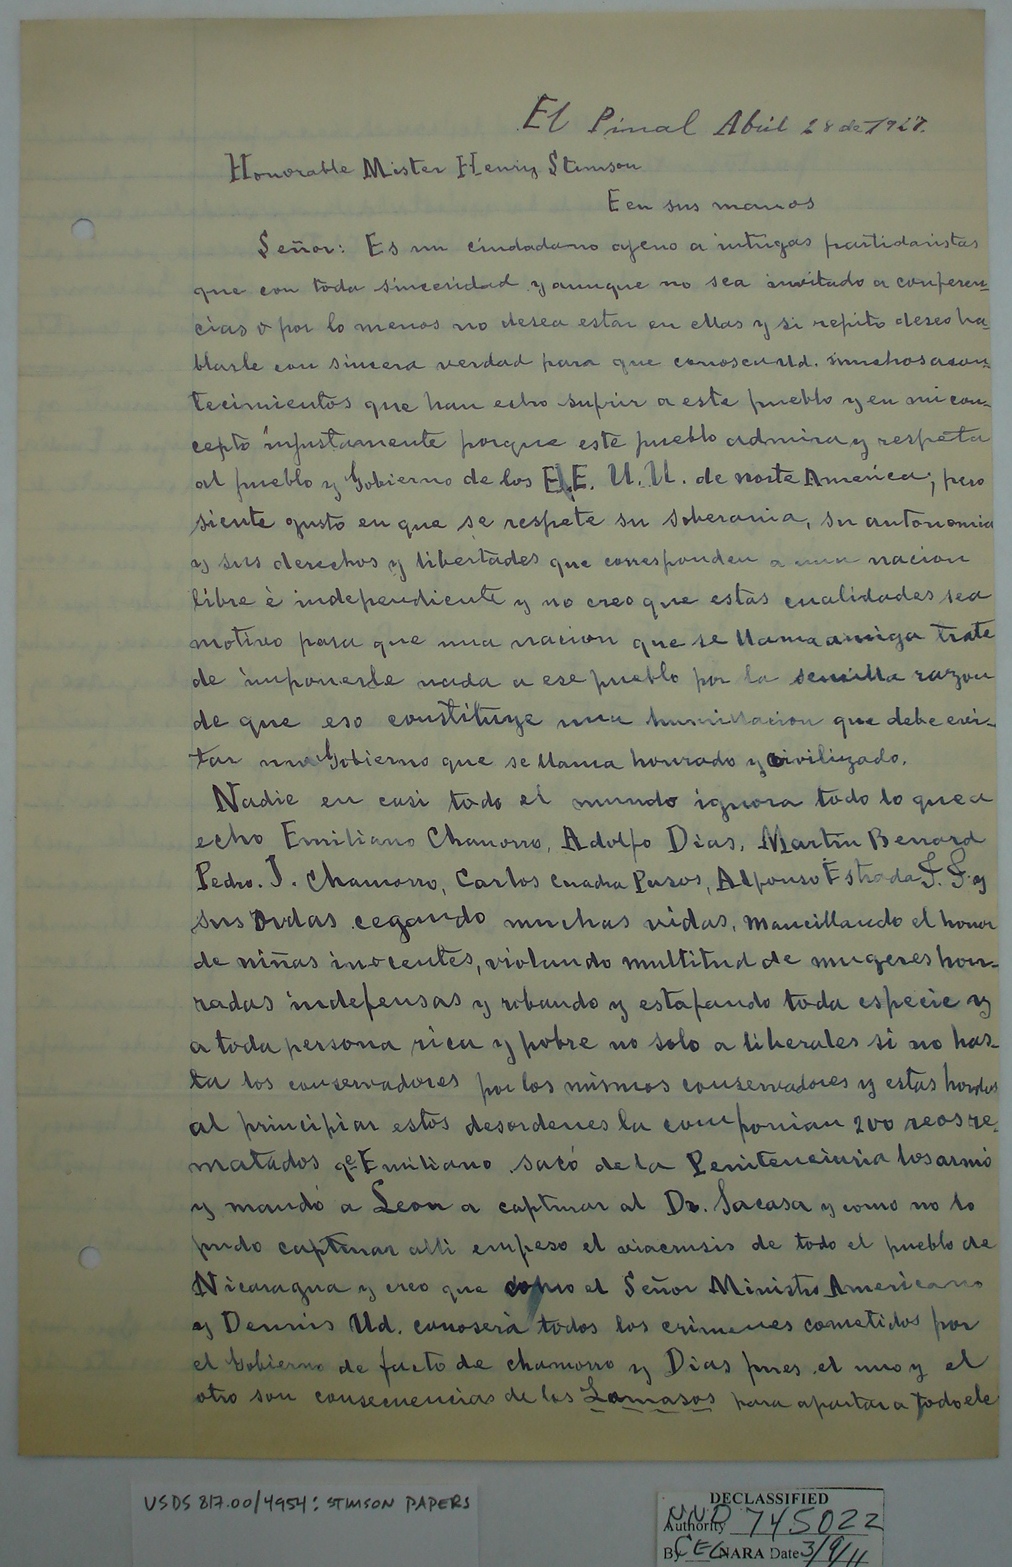 El Pinal Abril 28 de 1927.
Honorable Mister Henriy Stimson
Een sus manos
Señor: Es un ciudadano ageno a intrigas partidaristas
que con toda sinceridad y aunque no sea invitado a conferen-
cias o por lo menos no desea estar en ellas y si repito deseo ha-
blarle con sincera verdad para que conosca Ud. muchos acon-
tecimientos que han echo sufrir a este pueblo y en mi con-
cepto injustamente porque este pueblo admira y respeta
al pueblo y Gobierno de los E.E. U.U. de norte America; pero
siente gusto en que se respete su soberania, su autonomia
y sus derechos y libertades que corresponden a una nacion
libre è independiente y no creo que estas cualidades sea
motivo para que una nacion que se llama amiga trate
de imponerle nada a ese pueblo por la sencilla razon
de que eso constituye una humillacion que debe evi-
tar un Gobierno que se llama honrado y civilizado.
Nadie en casi todo el mundo ignora todo lo que a
echo Emiliano Chamorro, Adolfo Dias, Martin Benard
Pedro. J. Chamorro, Carlos Cuadra Pasos, Alfonso Estrada y
sus ordas cegando muchas vidas, mancillando el honor
de niñas inocentes, violando multitud de mugeres hon-
radas indefensas y robando y estafando toda especie y
a toda persona rica y pobre no solo a liberales si no has-
ta los conservadores por los mismos conservadores y estas hordas
al principiar estos desordenes la componian 200 reos re-
matados qe Emiliano sacó de la Penitenciaria los armó
y mandó a Leon a capturar al Dr. Sacasa y como no lo
pudo capturar alli empeso el viacrusis de todo el pueblo de
Nicaragua y creo que como el Señor Ministro Americano
y Dennis Ud. conoserá todos los crimenes cometidos por
el Gobierno de facto de chamorro y Dias pues el uno y el
otro son consecuencias de los Lomasos para apartar a todo ele
USDS 817.00/4954: STIMSON PAPERS
DECLASSIFIED
Authority NND 745022
By CEG NARA Date 3/9/11